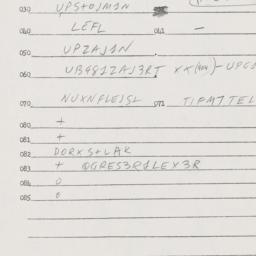 030 UPS+OJM1N
040 LEFL 041 —
050 UPZAJ1N
060 UB481ZAJ3RT XX
070 NUXNFLEJSL 071 TIPM7TEL
080 +
081 +
082 DORXS+LAR
083 + @GRES3R1LEX3R
084 0
085 0